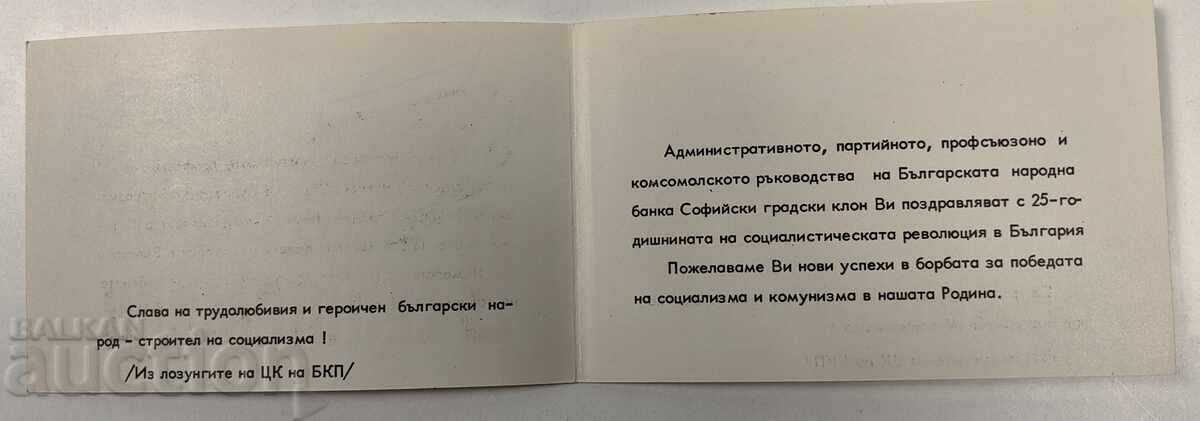 Слава на трудолюбивия и героичен български на-
род - строител на социализма !
/Из лозунгите на ЦК на БКП/
Административното, партийното, профсъюзоно и
комсомолското ръководства на Българската народна
банка Софийски градски клон Ви поздравляват с 25-го-
дишнината на социалистическата революция в България
Пожелаваме Ви нови успехи в борбата за победата
на социализма и комунизма в нашата Родина.
BALKAN
auction